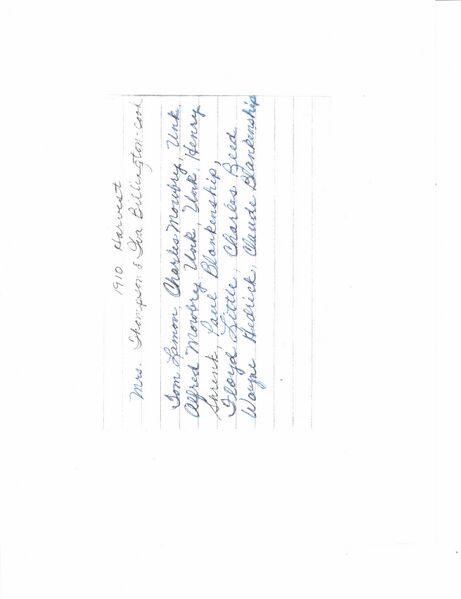 1910 Harvest
Mrs. Thompson & Iva Billington - cook
Tom Lamon, Charles Mowbry, Unk.
Alfred Mowbry, Unk, Unk, Henry
Shrenk, Paul Blankenship,
Floyd Little, Charles Reed
Wayne Hedrick, Claude Blankenship